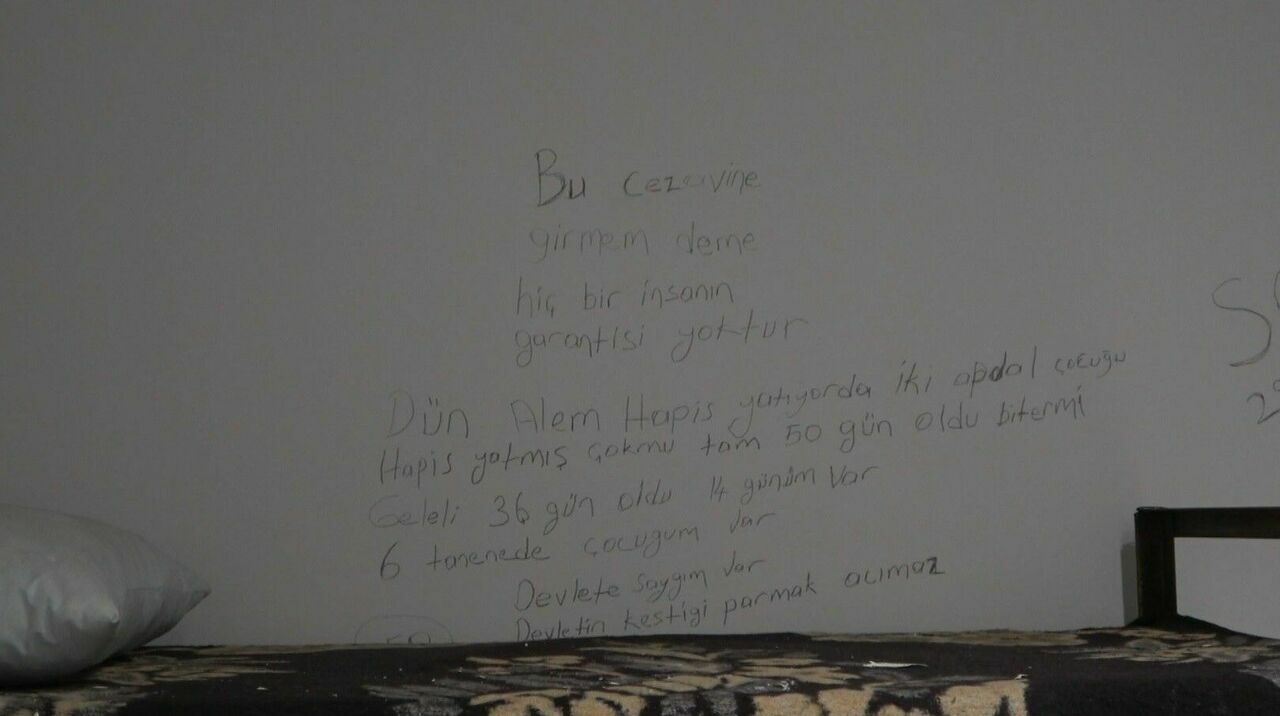 Bu cezavine
girmem deme
hiç bir insanın
garantisi yoktur
Dün Alem Hapis yatıyorda iki apdal çocuğu
Hapis yatmış çokmu tam 50 gün oldu bitermi
Geleli 36 gün oldu 14 günüm var
6 tanenede çocugum var
Devlete saygım var
Devletin kestigi parmak acımaz
50